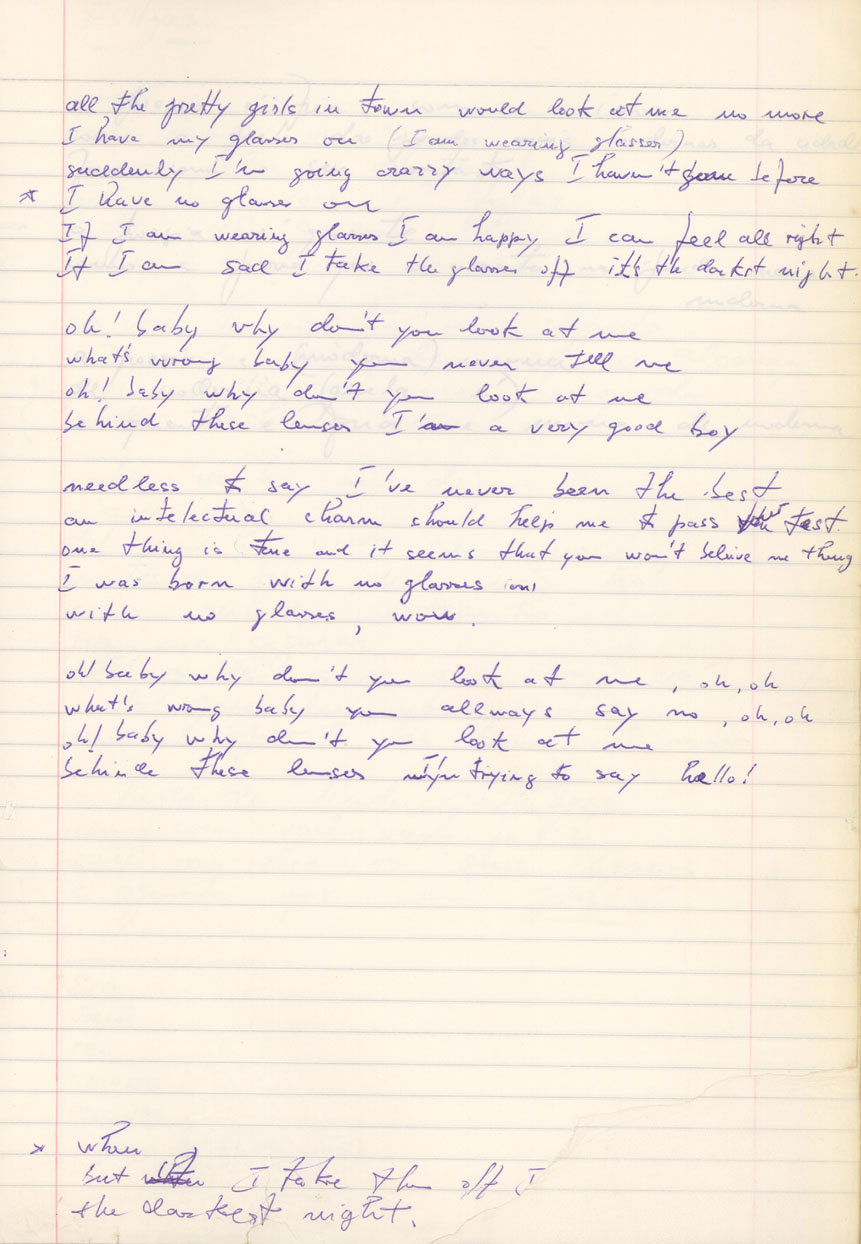 all the pretty girls in town would look at me no more
I have my glasses on (I am wearing glasses)
suddenly I'm going crazzy ways I haven't gone before
* I have no glasses on
If I am wearing glasses I am happy I can feel all right
If I am sad I take the glasses off it's the darkst night.
oh! baby why don't you look at me
what's wrong baby you never tell me
oh! baby why don't you look at me
behind these lenses I'am a very good boy
needless to say I've never been the best
an intelectual charm should help me to pass your test.
one thing is true and it seems that you won't belive me thoug
I was born with no glasses (on)
with no glasses, wow.
oh! baby why don't you look at me, oh, oh
what's wrong baby you allways say no, oh, oh
oh! baby why don't you look at me
behinde these lenses I'm trying to say hello!
* when
but I take them off I
the darkest night.